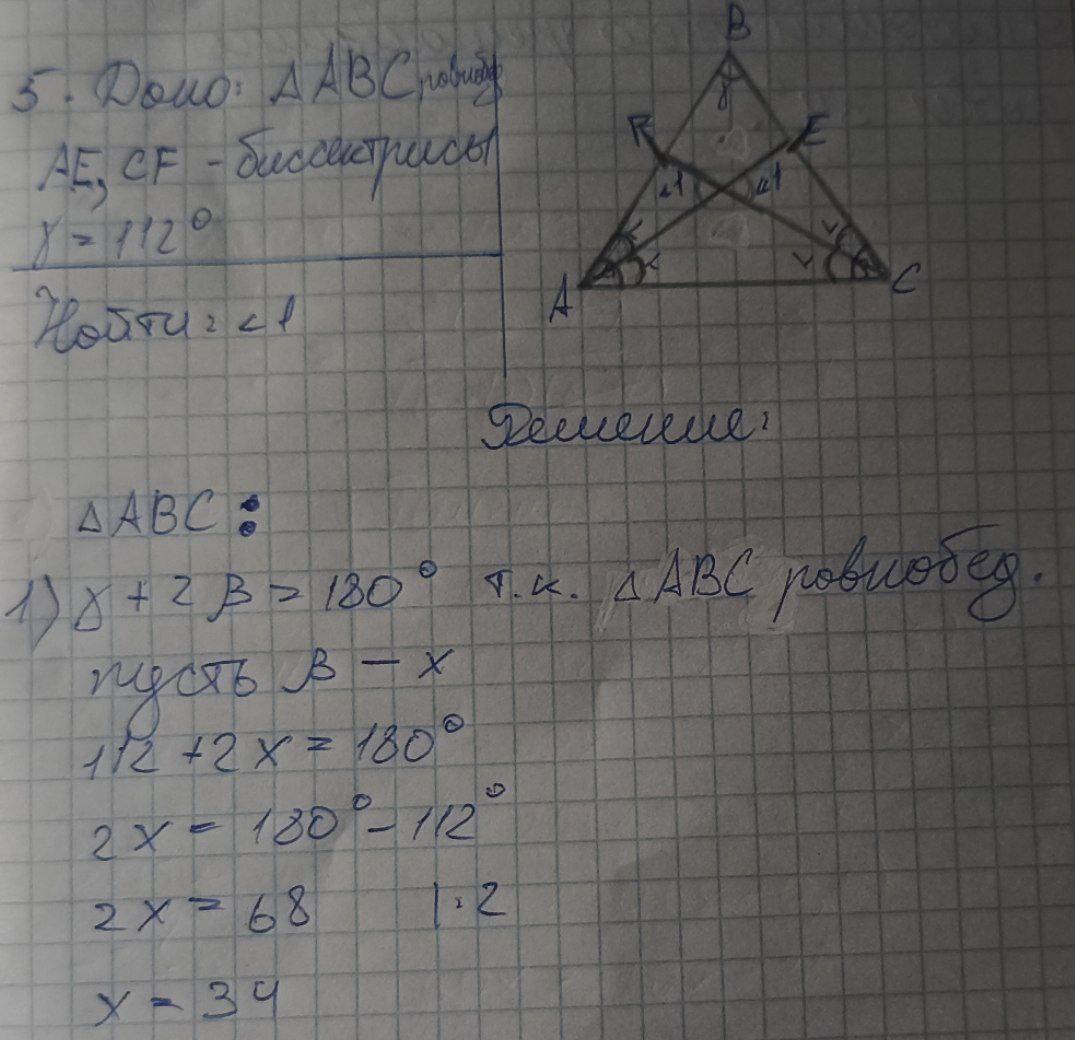 5. Дано: △ABC равнобед
AE, CF - биссектрисы
γ = 112°
Найти: <1
B
γ
E
<1
<1
A
C
Решение:
△ABC:
1) γ + 2β = 180° т.к. △ABC равнобед.
пусть β - x
112 + 2x = 180°
2x = 180° - 112°
2x = 68 |:2
x = 34